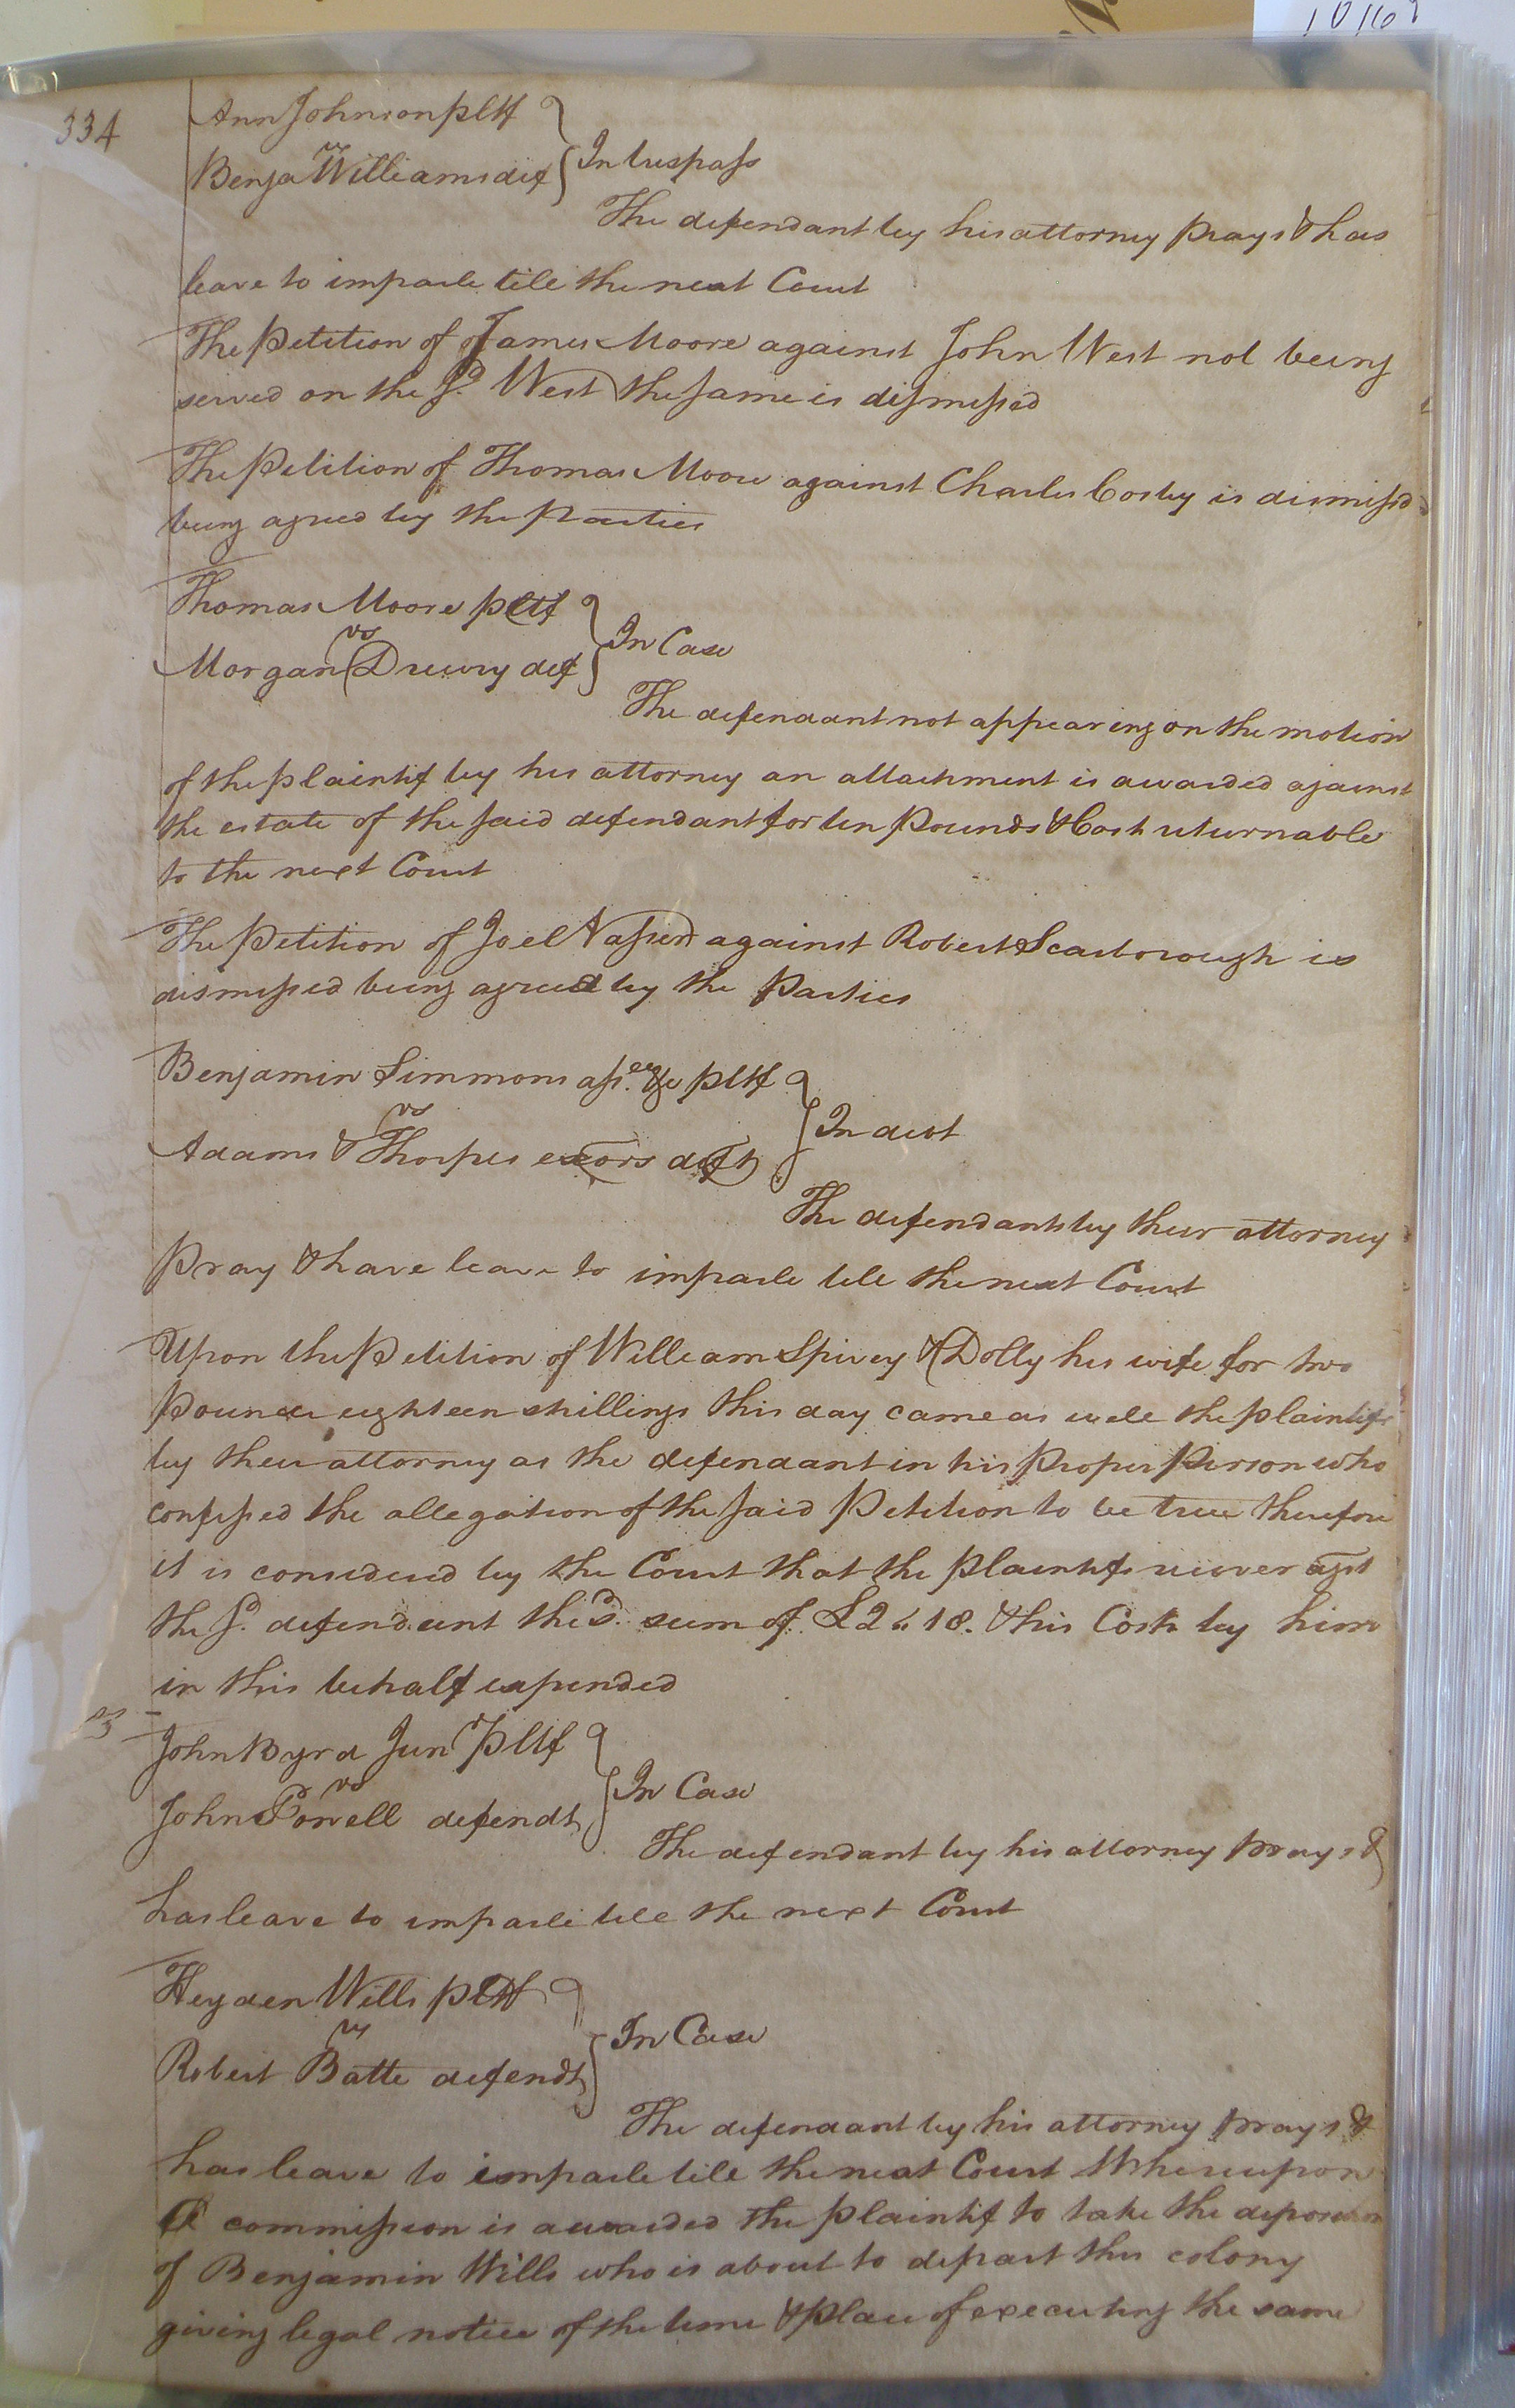 334
Ann Johnson pltf
vs
Benja Williams def
In trespass
The defendant by his attorney prays & has
leave to imparle till the next Court
The Petition of James Moore against John West not being
served on the sd. West the same is dismissed
The Petition of Thomas Moore against Charles Cosby is dismissd
being agreed by the Parties
Thomas Moore pltf
vs
Morgan Drewry def
In Case
The defendant not appearing on the motion
of the plaintif by his attorney an attachment is awarded against
the estate of the said defendant for ten Pounds & Costs returnable
to the next Court
The Petition of Joel against Robert Scarborough is
dismissed being agreed by the Parties
Benjamin Simmons assee. &c pltf
vs
Adams & Thorpes exors defts
In debt
The defendants by their attorney
Pray & have leave to imparle till the next Court
Upon the Petition of William Spivey & Dolly his wife for two
Pounds eighteen shillings this day came as well the plaintifs
by their attorney as the defendant in his Proper Person who
confessed the allegation of the said Petition to be true therefore
it is considered by the Court that the plaintifs recover agst
the sd. defendant the sd. sum of £2 " 18. & his Costs by him
in this behalf expended
John Byrd Junr Pltf
vs
John Powell defendt
In Case
The defendant by his attorney prays &
has leave to imparle till the next Court
Heyden Wills pltf
vs
Robert Batte defendt
In Case
The defendant by his attorney prays &
has leave to imparle till the next Court Whereupon
A commission is awarded the plaintif to take the deposition
of Benjamin Wills who is about to depart this colony
giving legal notice of the time & place of executing the same